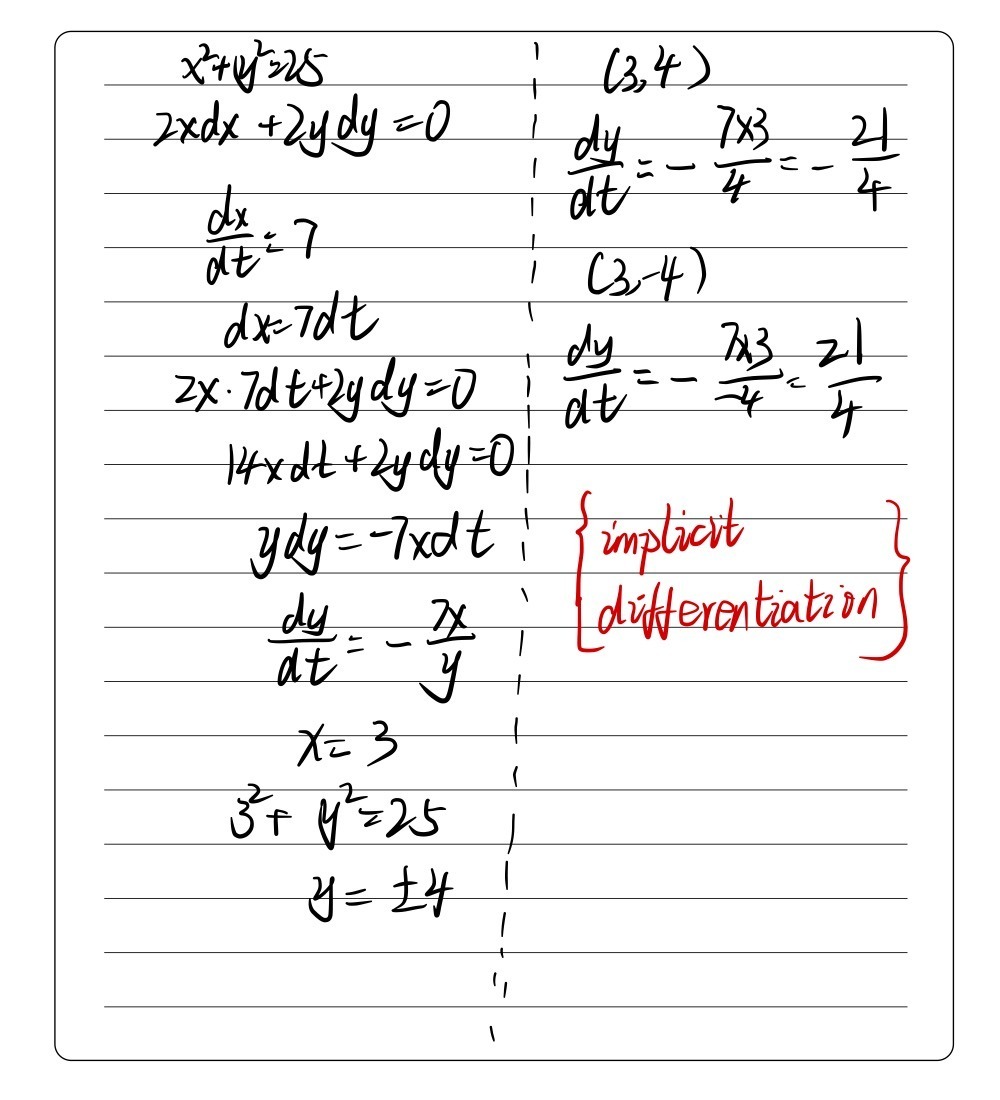 x²+y²=25
2xdx+2ydy=0
dx/dt=7
dx=7dt
2x·7dt+2ydy=0
14xdt+2ydy=0
ydy=-7xdt
dy/dt=-7x/y
x=3
3²+y²=25
y=±4
(3,4)
dy/dt=-7×3/4=-21/4
(3,-4)
dy/dt=-7×3/-4=21/4
{implicit
differentiation}